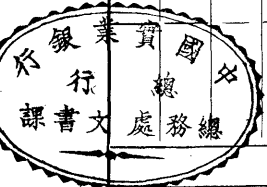 中國實業銀行
總行
總務處文書課